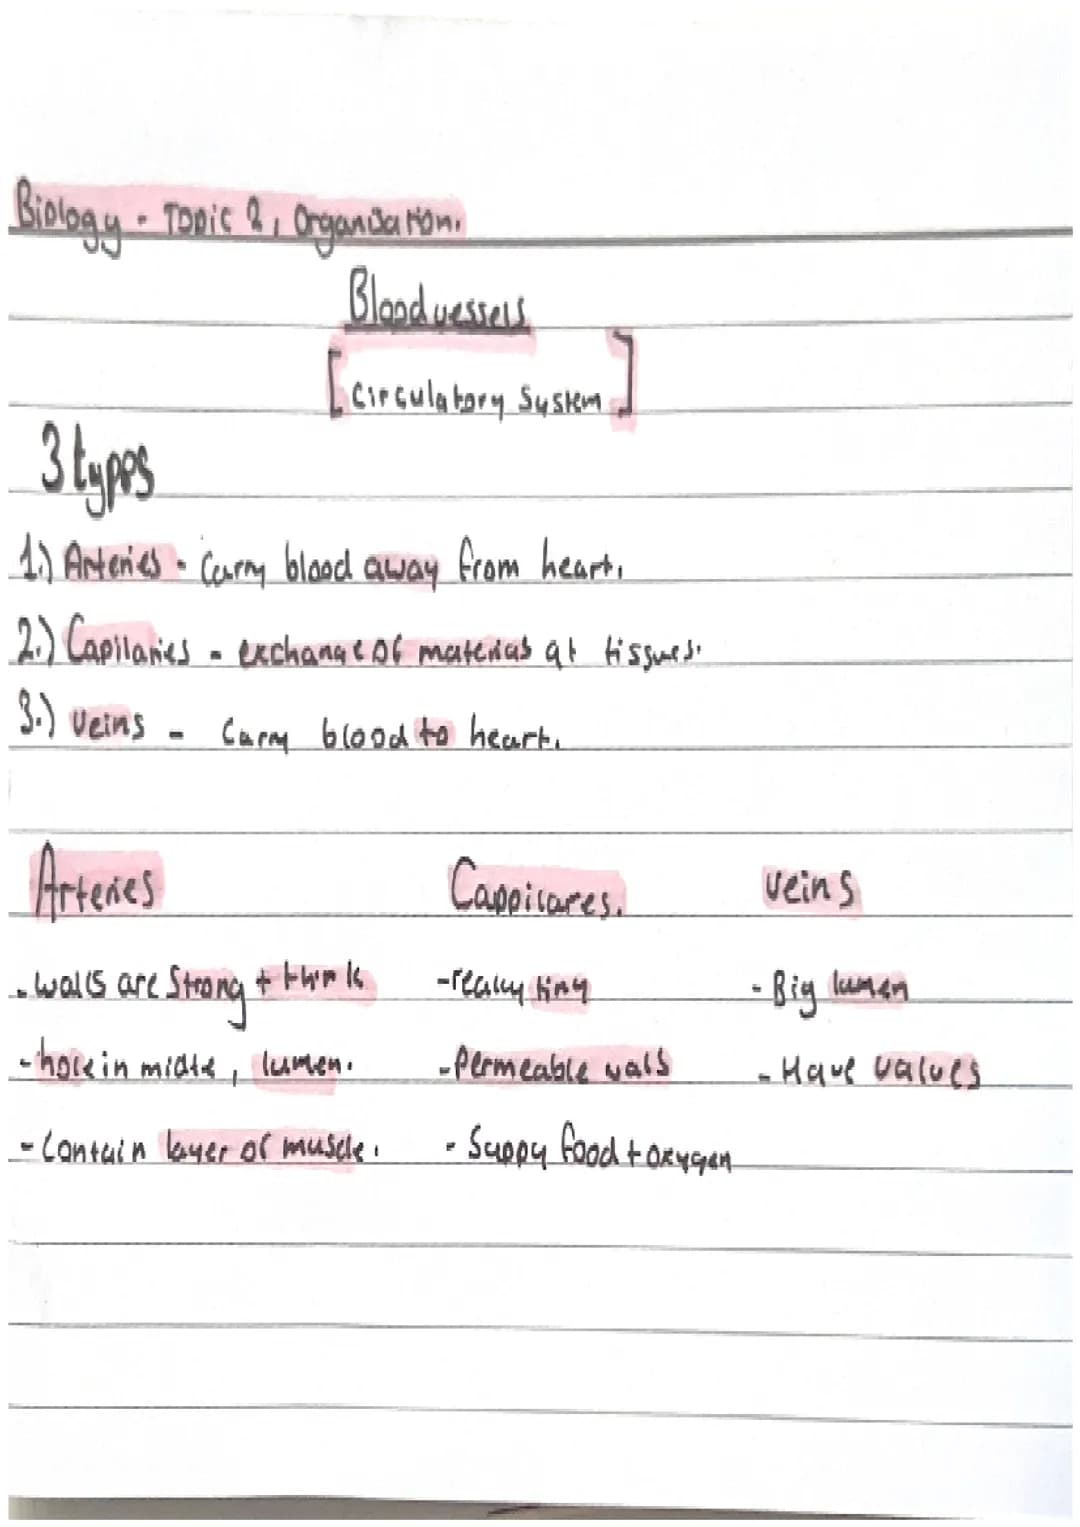 Biology - Topic 2, Organisation.
Blood vessels
[Circulatory System]
3 types
1.) Arteries - Carry blood away from heart.
2.) Capilaries - exchange of materials at tissues.
3.) Veins - Carry blood to heart.
Arteries Cappilares. Veins
- walls are Strong + think -really tiny - Big lumen
- hole in midle, lumen. - Permeable walls - Have valves
- Contain layer of muscle. - Suppy food + oxygen